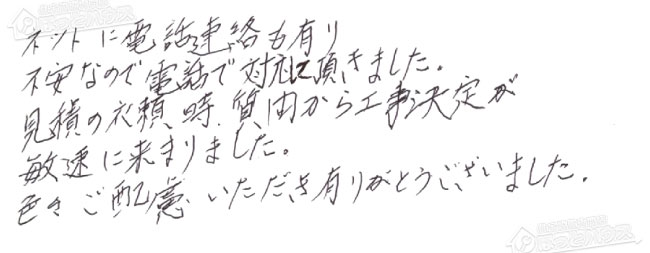 ネットに電話連絡も有り
不安なので電話で対応に頂きました。
見積の衣頼、時、質問から工事決定が
敏速に来まりました。
色々ご配慮いただき有りがとうございました。